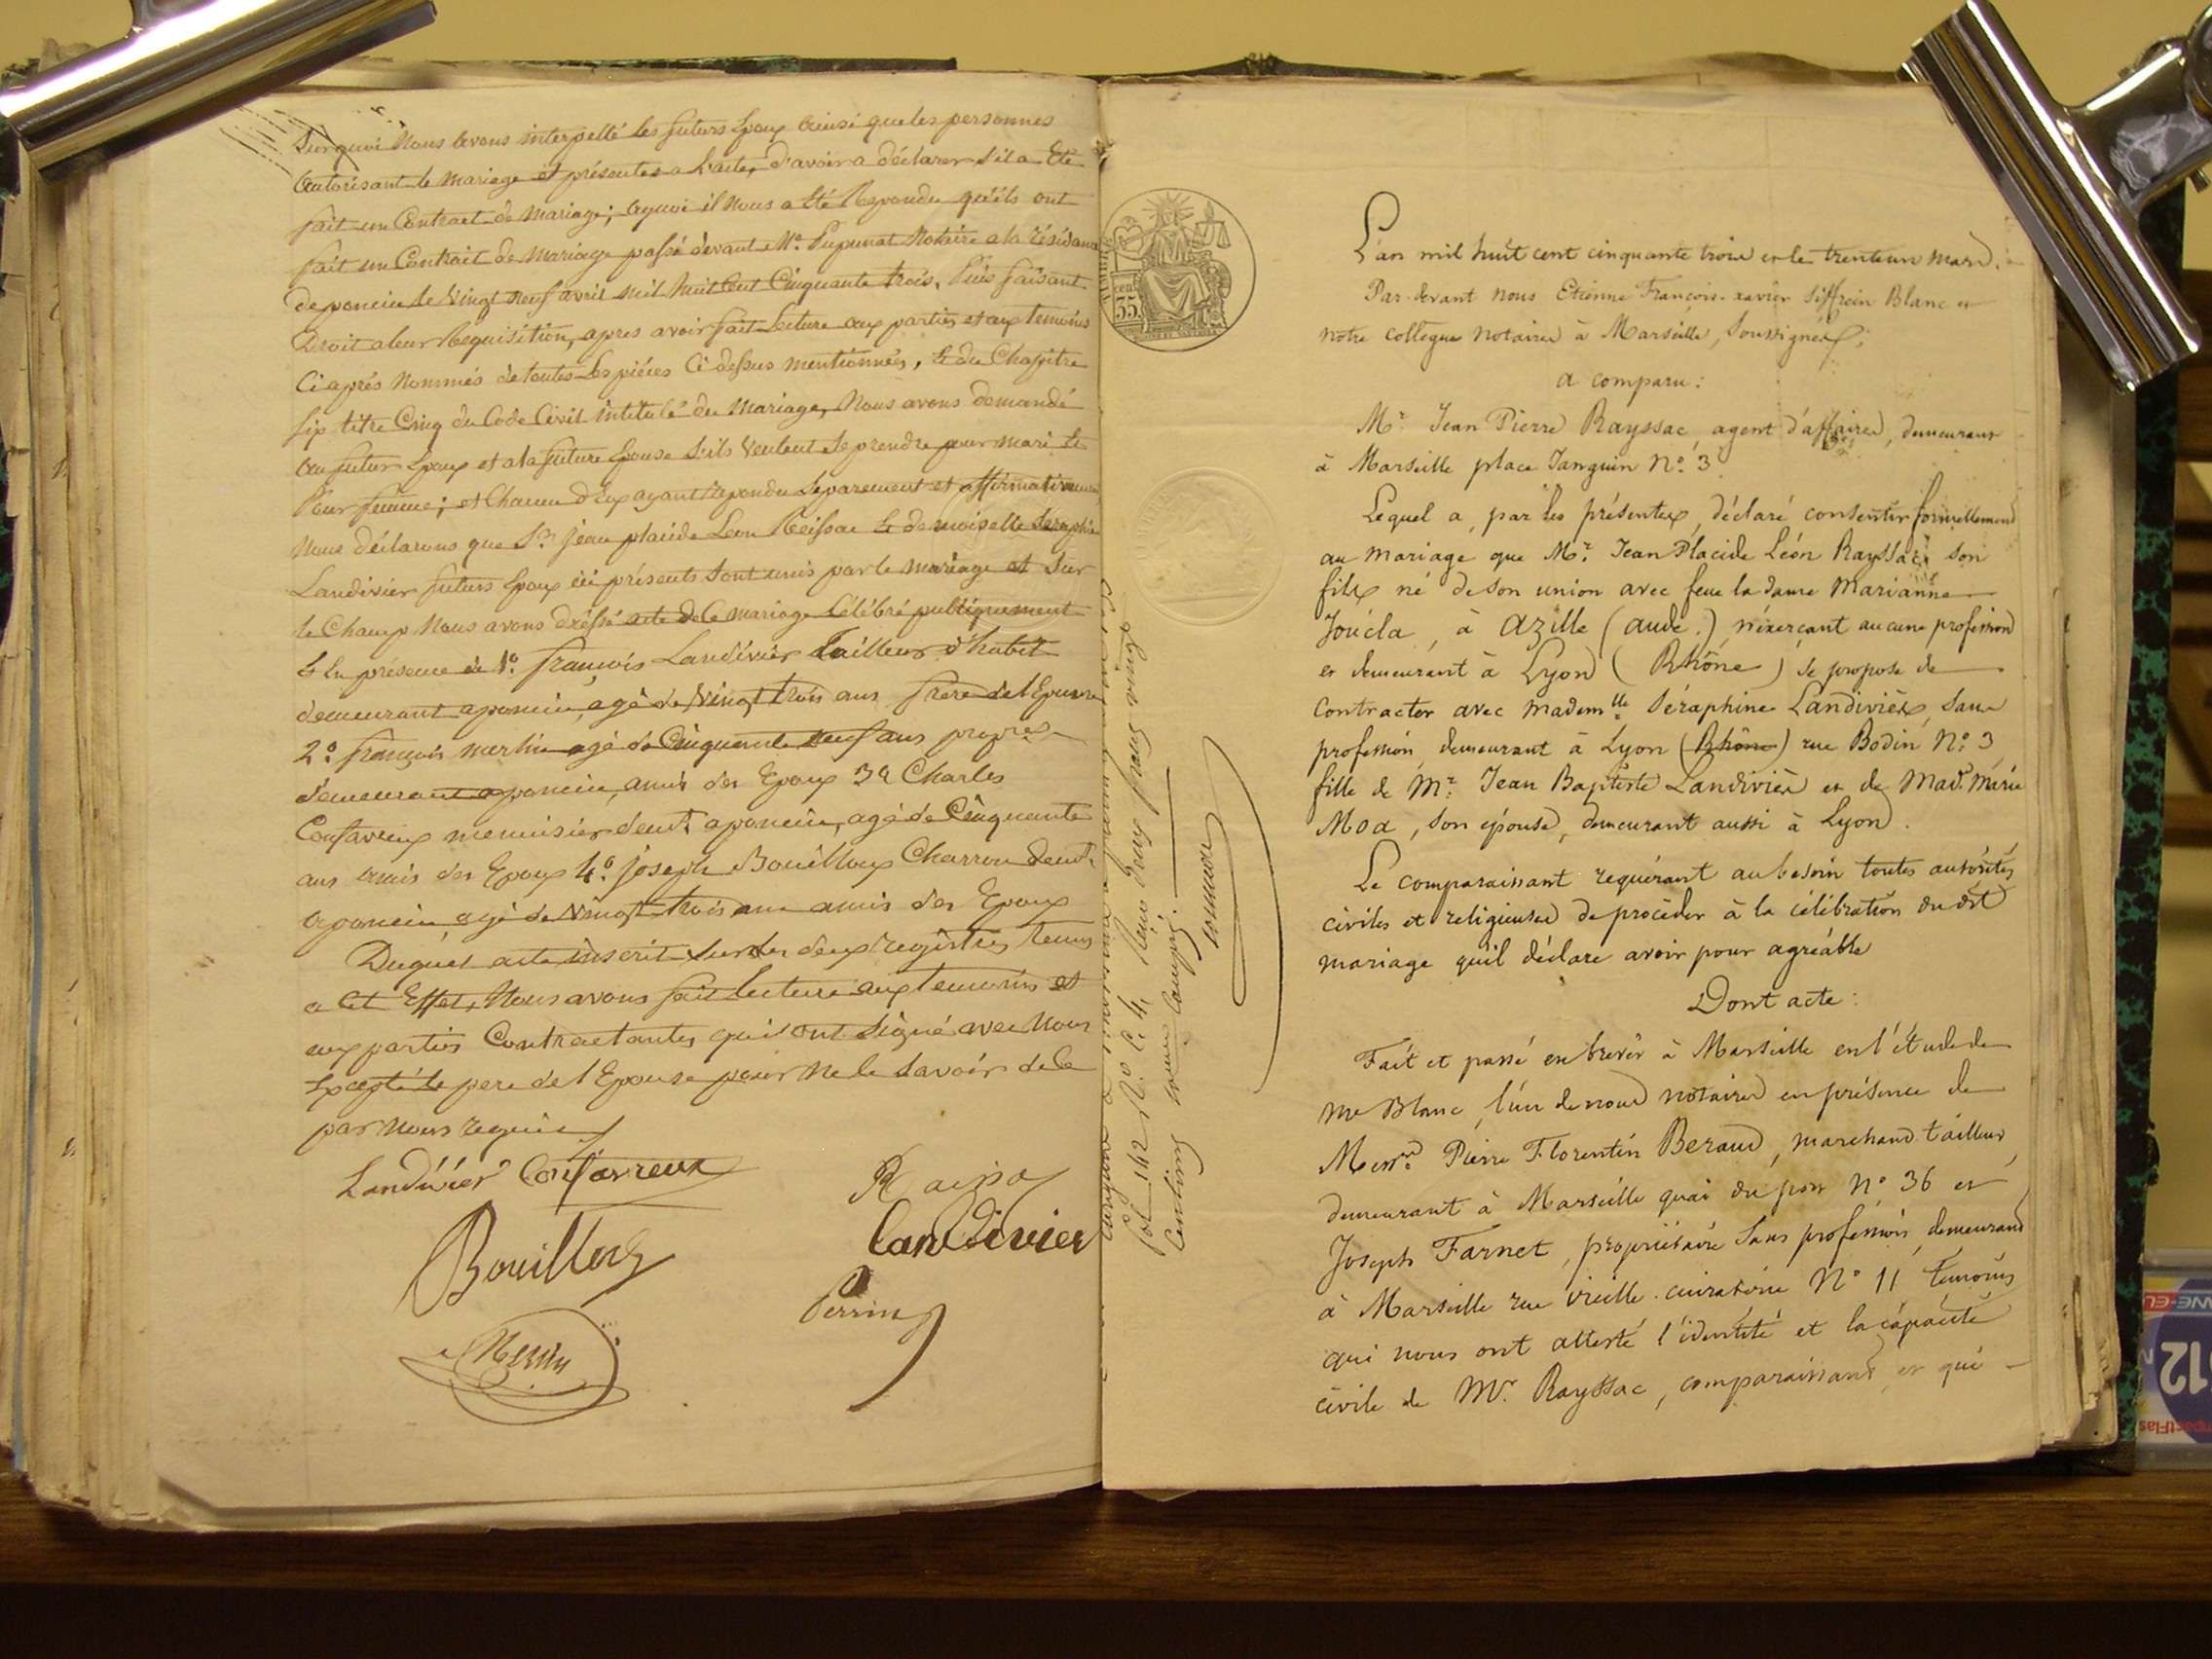 Surquoi Nous avons interpellé les futurs Epoux ainsi que les personnes
autorisant le mariage et présentes a l'acte, d'avoir a déclarer s'il a Eté
fait un Contract de Mariage; aquoi il nous a été Repondu qu'ils ont
fait un Contrait de Mariage passé devant Me. Pupunat Notaire a la résidance
de poncin le vingt neuf avril mil huit Cent Cinquante trois, Puis faisant
Droit a leur Réquisition, apres avoir fait Lecture aux parties et aux temoins
Ci après Nommés de toutes Les pièces Ci dessus mentionnées, & du Chapitre
six titre Cinq du Code Civil intitulé du Mariage, Nous avons demandé
au futur Epoux et a la future Epouse s'ils veulent se prendre pour mari &
Pour femme; et Chacun d'Eux ayant répondu Séparement et affirmativement
Nous déclarons que Sr. jean placide Leon Reissac & demoiselle Seraphie
Landivier futurs Epoux ici présents sont unis par le mariage et sur
le Champ Nous avons dréssé acte de Ce mariage Célébré publiquement
& En présence de 1o. françois Landivier Tailleur d'habit
demeurant a poncin, agé de vingt trois ans frère de l'Epouse
2o. françois merlin agé de Cinquante neuf ans propre.
demeurant a poncin, amis des Epoux 3o Charles
Confavreux menuisier demt. a poncin, agé de Cinquante
ans amis des Epoux 4o. joseph Bouilloux Charron demt.
a poncin, agé de vingt trois ans amis des Epoux
Duquel acte inscrit sur les deux registres tenus
a Cet Effet, Nous avons fait Lecture aux temoins et
aux parties Contractantes qui ont Signé avec Nous
Excepté le pere de l'Epouse pour ne le Savoir de Ce
par Nous requis
Landivier Confavreux
Bouilloux
Landivier
Perrin
cen
35
L'an mil huit cent cinquante trois et le trente un mars.
Par-devant nous Etienne François-xavier Siffrein Blanc et
notre collègue notaires à Marseille, Soussignés;
a comparu:
Mr. Jean Pierre Rayssac, agent d'affaires, demeurant
à Marseille place Janguin No. 3
Lequel a, par les présentes, déclaré consentir formellement
au mariage que Mr. Jean Placide Léon Rayssac, son
fils né de son union avec feue la dame Marianne
Jouéla, à Azille (aude.) n'éxerçant aucune profession
et demeurant à Lyon (Rhône) se propose de
contracter avec mademlle. Séraphine Landivier, Sans
profession demeurant à Lyon (Rhône) rue Bodin No. 3
fille de Mr. Jean Baptiste Landivier et de Made. Marie
Moa, son épouse, demeurant aussi à Lyon.
Le comparaissant requérant au besoin toutes autorités
civiles et religieuses de procéder à la célébration du dit
mariage qu'il déclare avoir pour agréable
Dont acte:
Fait et passé en brevet à Marseille en l'étude de
Me Blanc, l'un de nous notaires en présence de
Messrs. Pierre Florentin Beraud, marchand tailleur,
demeurant à Marseille quai du port No. 36 et
Joseph Farnet, propriétaire Sans profession, demeurant
à Marseille rue vieille-cuiraterie No 11, témoins
qui nous ont attesté l'identité et la capacité
civile de Mr. Rayssac, comparaissant, et qui
fol. 142 Ro. C. 4, Reçu deux francs vingt
Centimes Dixième Compris.
12